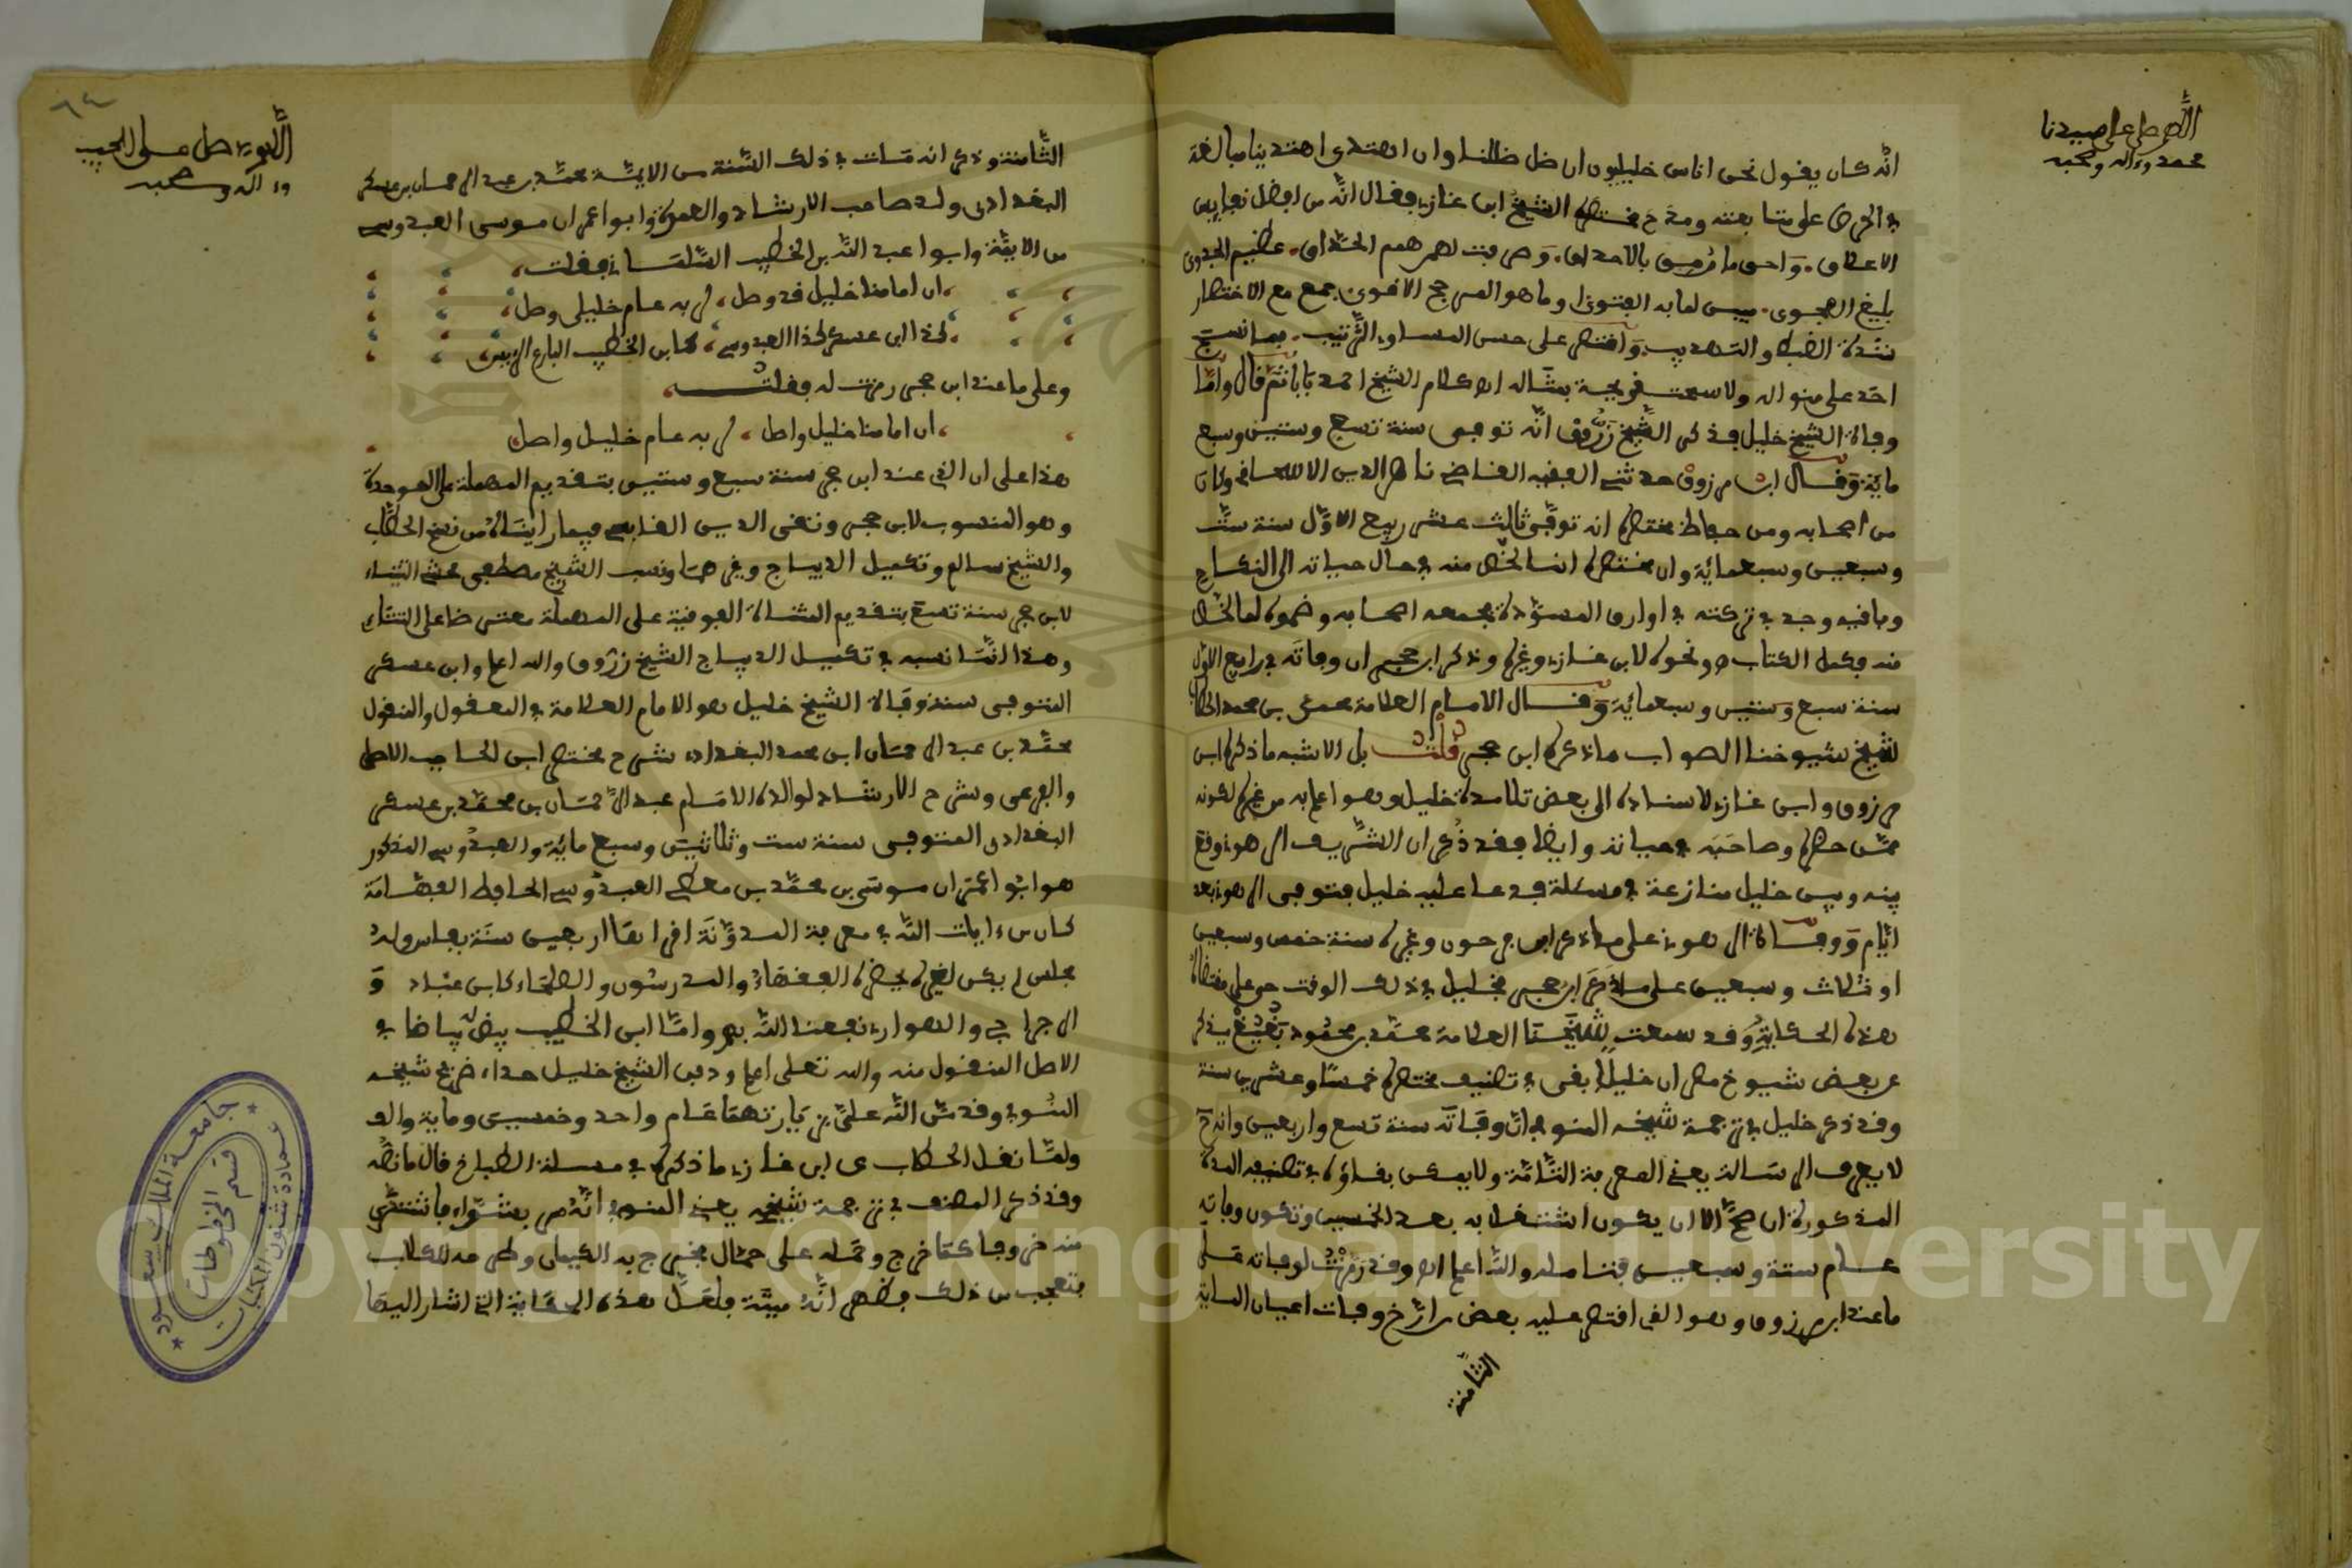 اللهم صل على سيدنا
محمد وءاله وصحبه
انه كان يقول نحن اناس خليليون ان ضل ضللنا وان اهتدى اهتدينا مبالغة
في الحرص على متابعته ومدح مختصره الشيخ ابن غازي فقال انه من افضل نفايس
الاعلاق. واحق ما رمق بالاحداق. وصرفت لهم همم الحذاق. عظيم الجدوى
بليغ الفحوى. مبين لما به الفتوى. وما هو المرجح الاقوى. جمع مع الاختصار
شدة الضبط والتهذيب. واقتصر على حسن المساق والترتيب. فما نسج
احد على منواله ولا سمحت قريحة بمثاله اه كلام الشيخ احمد بابا ثم قال واما
وفاة الشيخ خليل فذكر الشيخ زروق انه توفى سنة تسع وستين وسبع
مائة وقال ابن مرزوق حدثني الفقيه القاضي ناصر الدين الاسحاقي وكان
من اصحابه ومن حفاظ مختصره انه توفي ثالث عشر ربيع الاول سنة ست
وسبعين وسبعمائة وان مختصره انما لخص منه في حال حياته الى النكاح
وباقيه وجد في تركته في اوراق المسودة فجمعه اصحابه وضموه لما لخص
منه فكمل الكتاب اه ونحوه لابن غازي وغيره وذكر ابن حجر ان وفاته في ربيع الاول
سنة سبع وستين وسبعمائة وقال الامام العلامة محمد بن محمد الحطاب
شيخ شيوخنا الصواب ما ذكره ابن حجر قلت بل الاشبه ما ذكره ابن
مرزوق وابن غازي لاسناده الى بعض تلامدة خليل وهو اعلم به من غيره لكونه
ممن حضره وصاحبه في حياته وايضا فقد ذكر ان الشريف الرهوني وقع
بينه وبين خليل منازعة في مسئلة فدعا عليه خليل فتوفى الرهوني بعد
ايام ووفاة الرهوني على ما ذكر ابن فرحون وغيره سنة خمس وسبعين
او ثلاث وسبعين على ما ذكر ابن حجر فخليل في ذلك الوقت حي على مقتضى
هذه الحكاية وقد سمعت شيخنا العلامة محمد بن محمود بغيغ يذكر
عن بعض شيوخ مصر ان خليلا بقى في تصنيف مختصره خمسا وعشرين سنة
وقد ذكر خليل في ترجمة شيخه المنوفي ان وفاته سنة تسع واربعين وانه ح
لا يعرف الرسالة يعني المعرفة التامة ولا يمكن بقاؤه في تصنيفه المدة
المذكورة ان صح الا ان يكون اشتغل به بعد الخمسين وتكون وفاته
عام ستة وسبعين فتامله والله اعلم اه وقد رمزت لوفاته على
ما عند ابن مرزوق وهو الذي اقتصر عليه بعض من ارخ وفيات اعيان الماية
الثامنة
اللهم صل على الحبيب
وءاله وصحبه
٦٤
الثامنة وذكر انه مات في ذلك السنة من الايمة محمد بن عبد الرحمان بن عسكر
البغدادي ولد صاحب الارشاد والعمدة وابو اعمران موسى العبدوسي
من الايمة وابوا عبد الله بن الخطيب التلمساني فقلت
ان امامنا خليل قد وصل، لربه عام خليلي وصل
كذا ابن عسكر كذا العبدوسي، كابن الخطيب البارع الرييس
وعلى ما عند ابن حجر رمزت له فقلت
ان امامنا خليل واصل، لربه عام خليل واصل
هذا على ان الذي عند ابن حجر سنة سبع وستين بتقديم المهملة على الموحدة
وهو المنسوب لابن حجر وتقى الدين الفاسي فيما رايناه من نسخ الحطاب
والشيخ سالم وتكميل الديباج وغيرها ونسب الشيخ مصطفى محشي التتاءي
لابن حجر سنة تسع بتقديم المثناة الفوفية على المهملة معترضا على التتاءي
وهذا انما نسبه في تكميل الديباج الشيخ زروق والله اعلم وابن عسكر
المتوفى سنة وفاة الشيخ خليل هو الامام العلامة في المعقول والمنقول
محمد بن عبد الرحمان ابن محمد البغدادي شرح مختصر ابن الحاجب الاصلى
والفرعى وشرح الارشاد لوالده الامام عبد الرحمان بن محمد بن عسكر
البغدادي المتوفى سنة ست وثلاثين وسبع مائة والعبدوسي المذكور
هو ابو اعمران موسى بن محمد بن معطي العبدوسي الحافظ الفهامة
كان من ءايات الله في معرفة المدونة اقراها اربعين سنة بفاس وله
مجلس لم يكن لغيره يحضره الفقهاء والمدرسون والصلحاء كابن عباد و
الرجراجي والهواري نفعنا الله بهم واما ابن الخطيب بيض له بياضا في
الاصل المنقول منه والله تعلى اعلم ودفن الشيخ خليل حداء ضريح شيخه
المنوفي وقد من الله على بزيارتهما عام واحد وخمسين وماية والف
ولما نقل الحطاب عن ابن غازي ما ذكره في مسئلة الطباخ قال ما نصه
وقد ذكر المصنف في ترجمة شيخه يعني المنوفي انه مر بشواء فاشترى
منه خروفا كما خرج وحمله على حمال فخرج به الكيمان وطرحه للكلاب
فتعجب من ذلك فظهر انه ميتة ولعل هذه الحكاية التي اشار اليها
جامعة الملك سعود
عمادة شئون المكتبات
قسم المخطوطات
Copyright © King Saud University